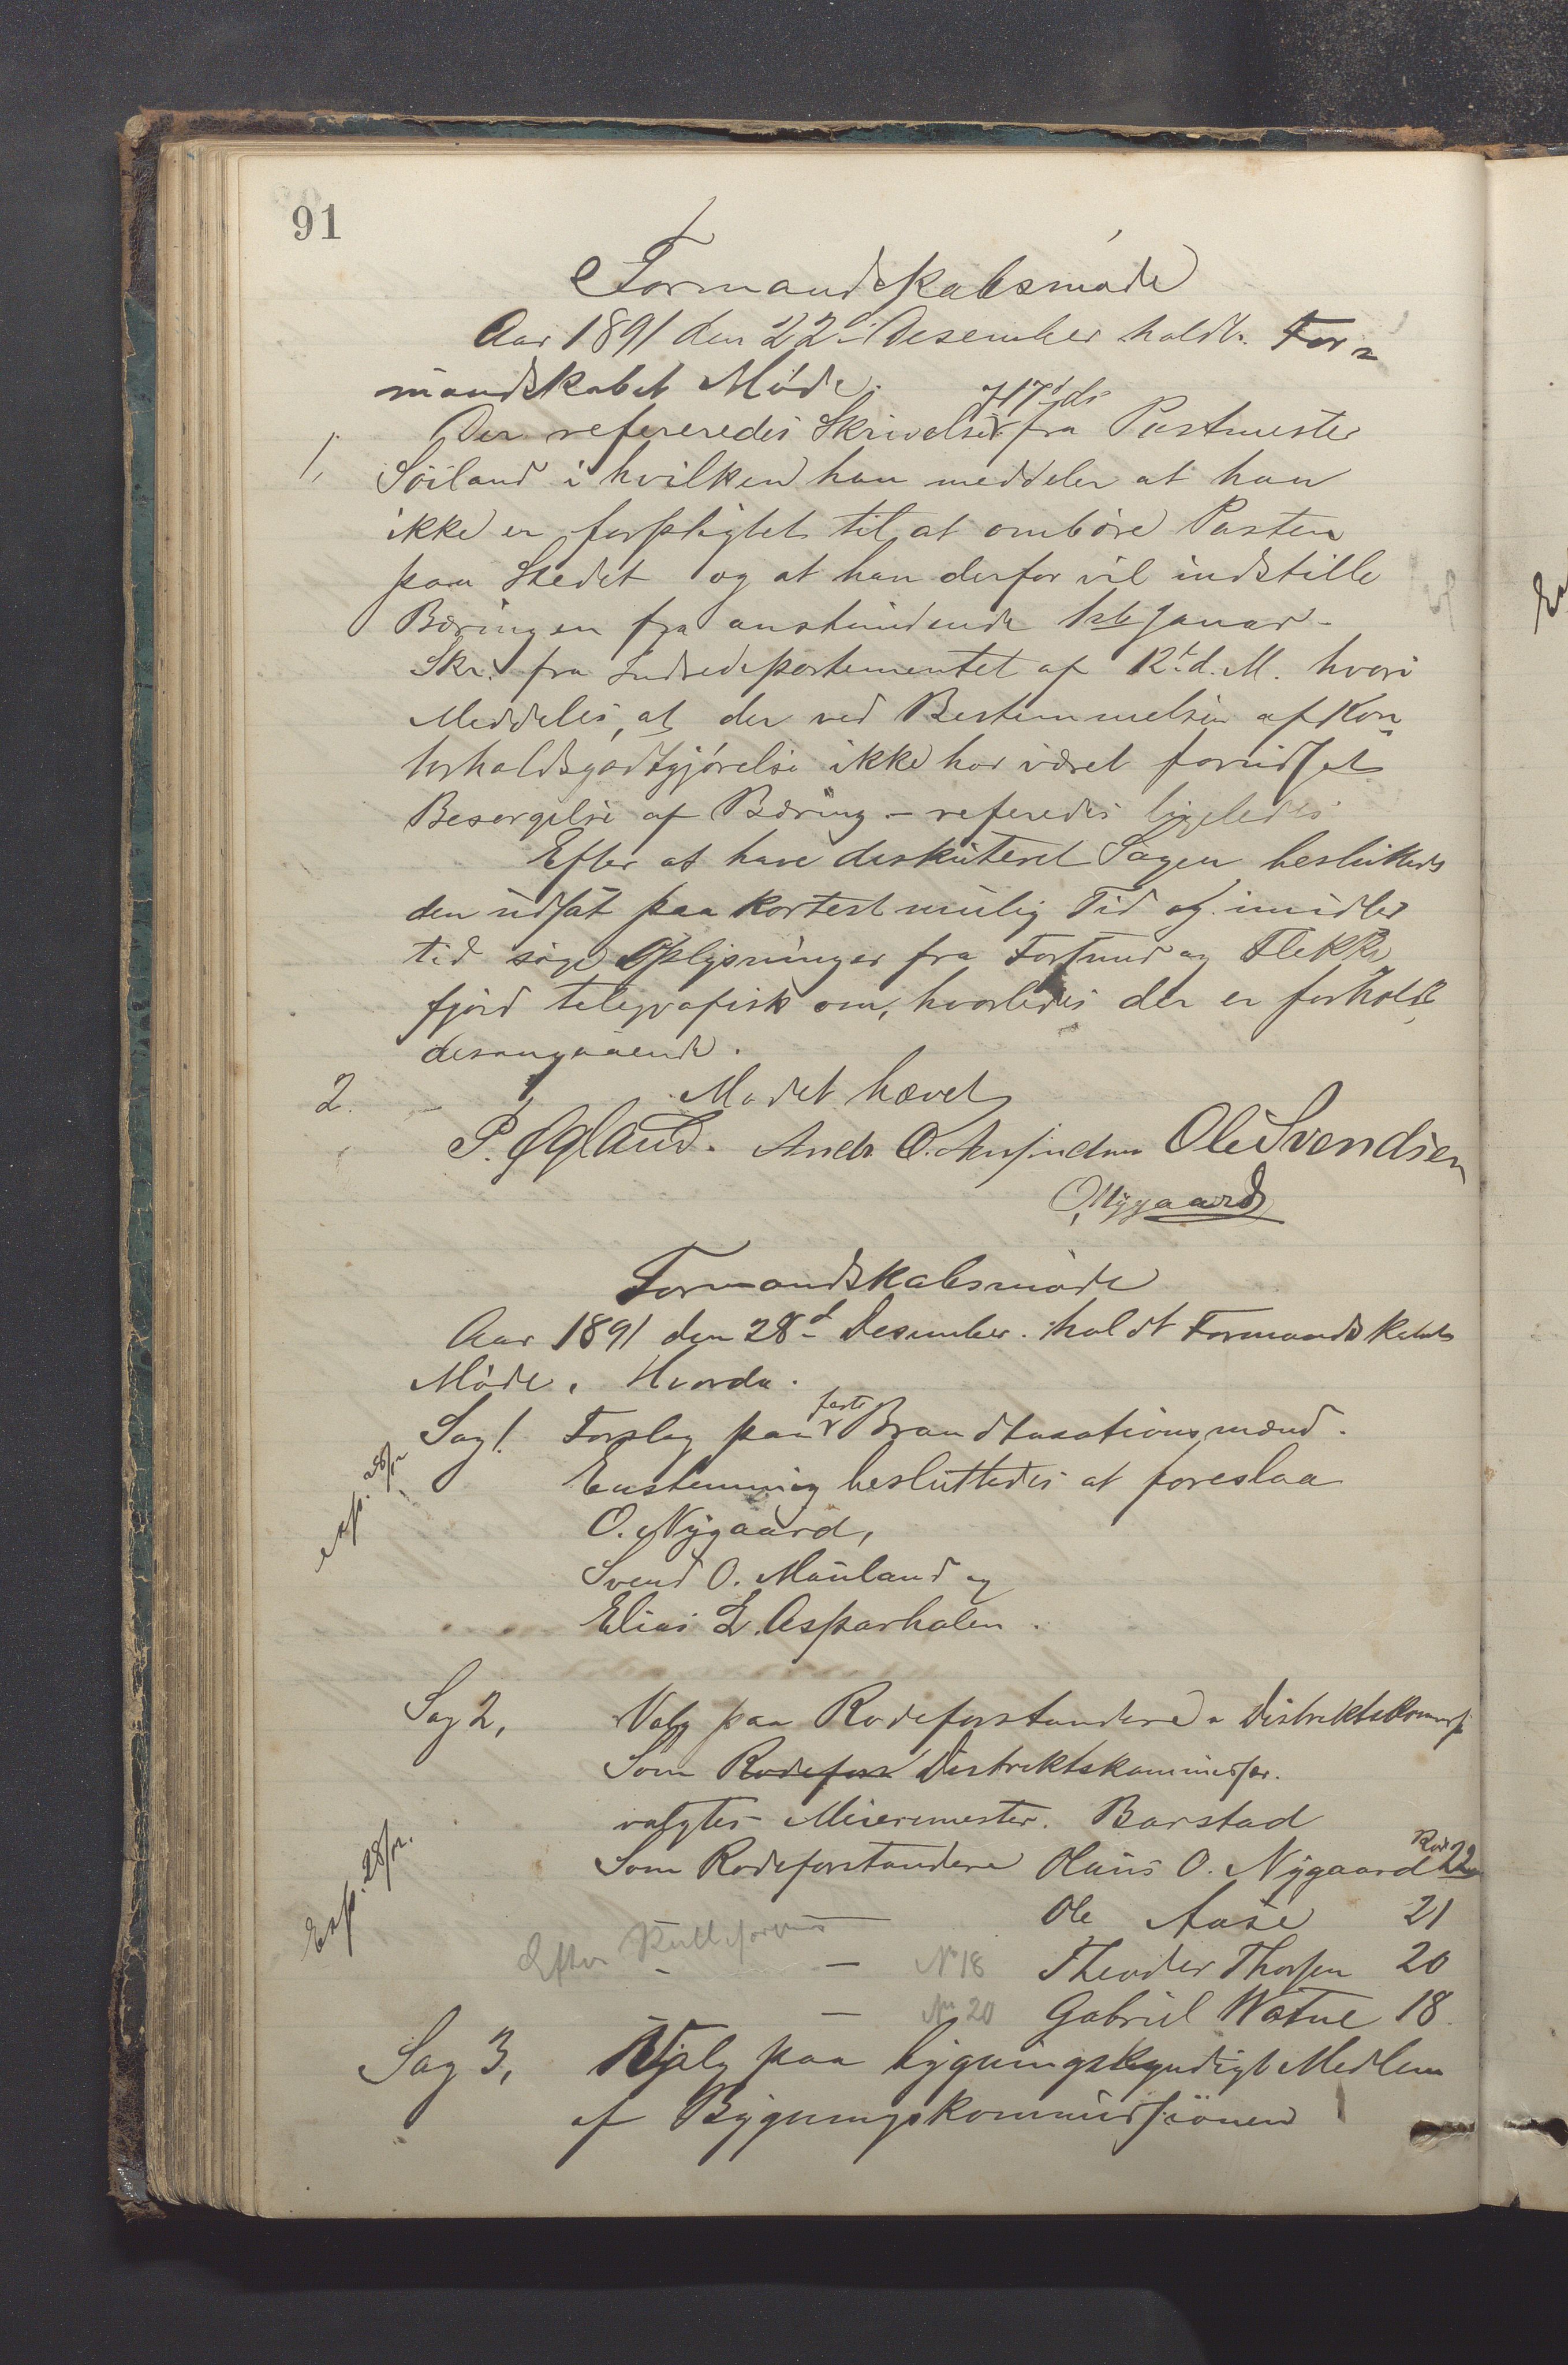 91
Formandskabsmøde
Aar 1891 den 22d Desember holdt For-
mandskabet Møde.
1, Der refereredes Skrivelse af 17' ds fra Postmester
Söiland i hvilken han meddeler at han
ikke er forpligtet til at omböre Posten
paa Stedet og at han derfor vil indstille
Bæringen fra anstundende 1ste Januar -
Skr. fra Indredepartementet af 12t d. M. hvori
Meddeles, at der ved Bestemmelsen af Kon-
torholdsgodtgjörelse ikke har været forudsat
Besørgelse af Bæring - referedes ligeledes
Efter at have diskuteret Sagen besluttedes
den udsat paa kortest mulig Tid og imidler
tid søge Oplysninger fra Farsund og Flekke
fjord telegrafisk om, hvorledes der er forholdt
desangaaende.
2. Mødet hævet
P. Ógland. Andr. O. Ole Svendsen
O Nygaard
Formandskabsmøde
Aar 1891 den 28d Desember holdt Formandskabet
Møde. Hvorda.
Sag 1. Forslag paa faste Brandtaxationsmænd.
Exp. 28/12
Enstemmig besluttedes at foreslaa
O. Nygaard,
Svend O. Mauland og
Elias L. Asparhalen.
Sag 2, Valg paa Rodeforstandere & Distriktskommis
Som Rodefors Distriktskommissær.
valgtes Meiermester. Barstad
Som Rodeforstandere Hans O. Nygaard Rode 22
Exp. 28/12.
Ole Aase 21
Efter - - No 18 Theodor Thorsen 20
- No 20 Gabriel Watne 18.
Sag 3, Valg paa bygningskyndigt Medlem
af Bygningskommissionen